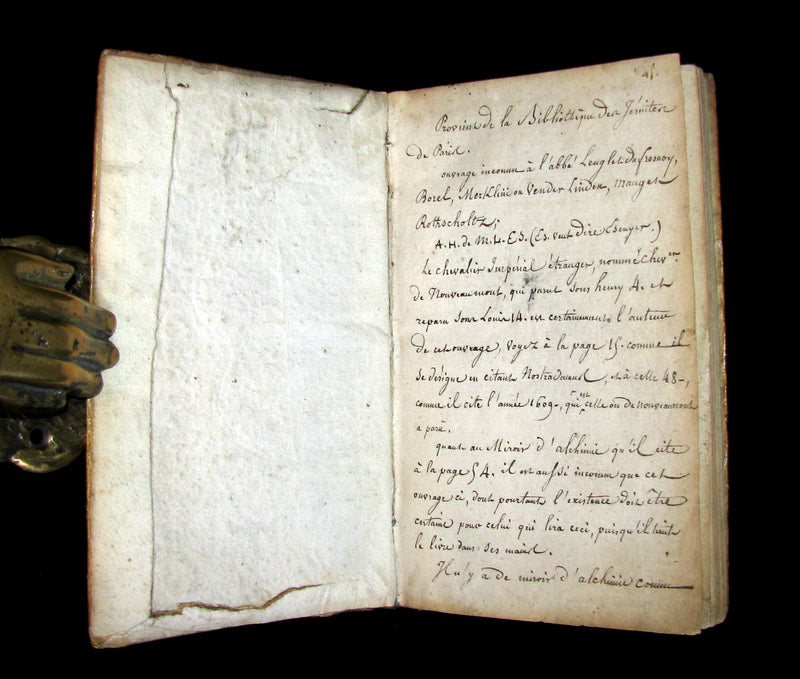 Provient de la Bibliothèque des Jésuites
de Paris.
ouvrage inconnu à l'abbé Lenglet Dufresnoy,
Borel, Merklin ou Vender Linden, Manget
Rothscholtz;
A. H. de M. L. ES. (Es. veut dire Escuyer.)
Le chevalier Impérial étranger, nommé Chev.er
de Nouveaumont, qui parut sous henry 4. et
reparu sous Louis 14. est certainement l'auteur
de cet ouvrage, voyez à la page 15. comme il
se désigne en citant Nostradamus, et à celle 48-,
comme il cite l'année 1609-, qui est celle ou de nouveaumont
a paru.
quant au Miroir d'alchimie qu'il cite
à la page 54. il est aussi inconnu que cet
ouvrage ci, dont pourtant l'existence doit être
certaine pour celui qui lira ceci, puisqu'il tient
le livre dans ses mains.
Il n'y a de miroir d'alchimie connu